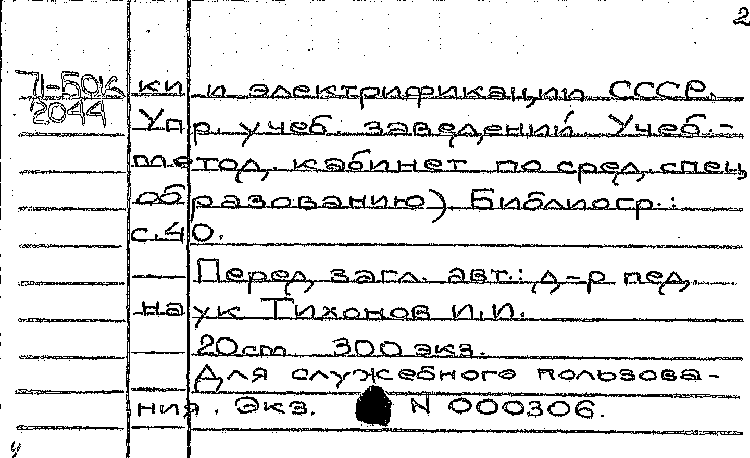 2
71-50к
2044
ки и электрификации СССР.
Упр. учеб. заведений. Учеб.-
метод. кабинет по сред. спец
образованию). Библиогр.:
с.40.
Перед загл. авт.: д-р пед.
наук Тихонов И.И.
20 cm 300 экз.
Для служебного пользова-
ния. Экз. N 000306.